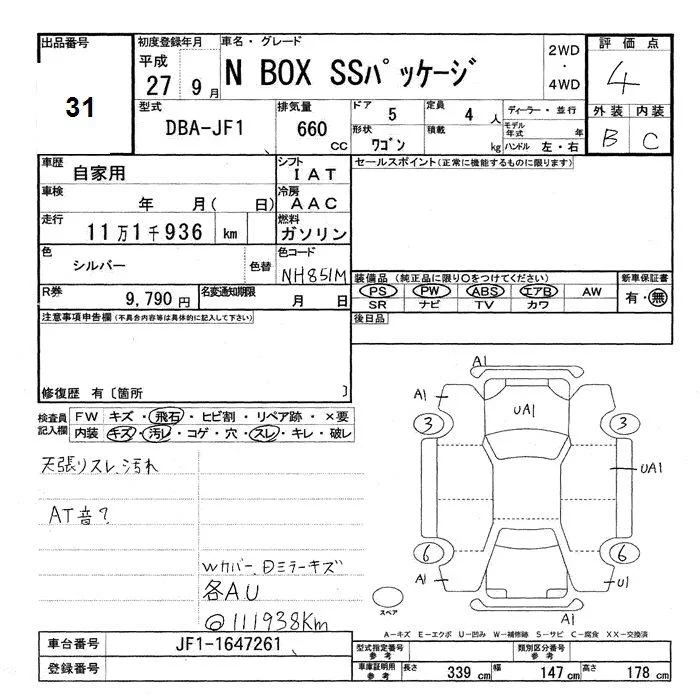 出品番号
31
初度登録年月
平成
27 9 月
車名・グレード
N BOX SSパッケージ
2WD
・
4WD
評価点
4
外装 内装
B C
型式
DBA-JF1
排気量
660 cc
ドア 5
定員 4 人
形状 ワゴン
積載 kg
ディーラー・並行
モデル年式 年
ハンドル 左・右
車歴
自家用
シフト
IAT
セールスポイント(正常に機能するものに限ります)
車検
年 月( 日)
冷房
AAC
走行
11 万1 千 936 km
燃料
ガソリン
色
シルバー
色替
色コード
NH851M
装備品 (純正品に限り○をつけてください)
PS PW ABS エアB AW
SR ナビ TV カワ
新車保証書
有・無
R券
9,790 円
名変通知期限
月 日
後日品
注意事項申告欄(不具合内容等は具体的に記入して下さい)
修復歴 有〔箇所 〕
検査員
記入欄
FW キズ・飛石・ヒビ割・リペア跡・×要
内装 キズ・汚レ・コゲ・穴・スレ・キレ・破レ
天張リスレ、汚れ
AT音?
Wカバー、日ミラーキズ
各AU
@111938Km
A1
A1
UA1
3 3
UA1
6 6
A1 U1
A1
スペア
A-キズ E-エクボ U-凹み W-補修跡 S-サビ C-腐食 XX-交換済
車台番号
JF1-1647261
登録番号
型式指定番号
参考
類別区分番号
参考
車庫証明用
参考
長さ 339 cm 幅 147 cm 高さ 178 cm